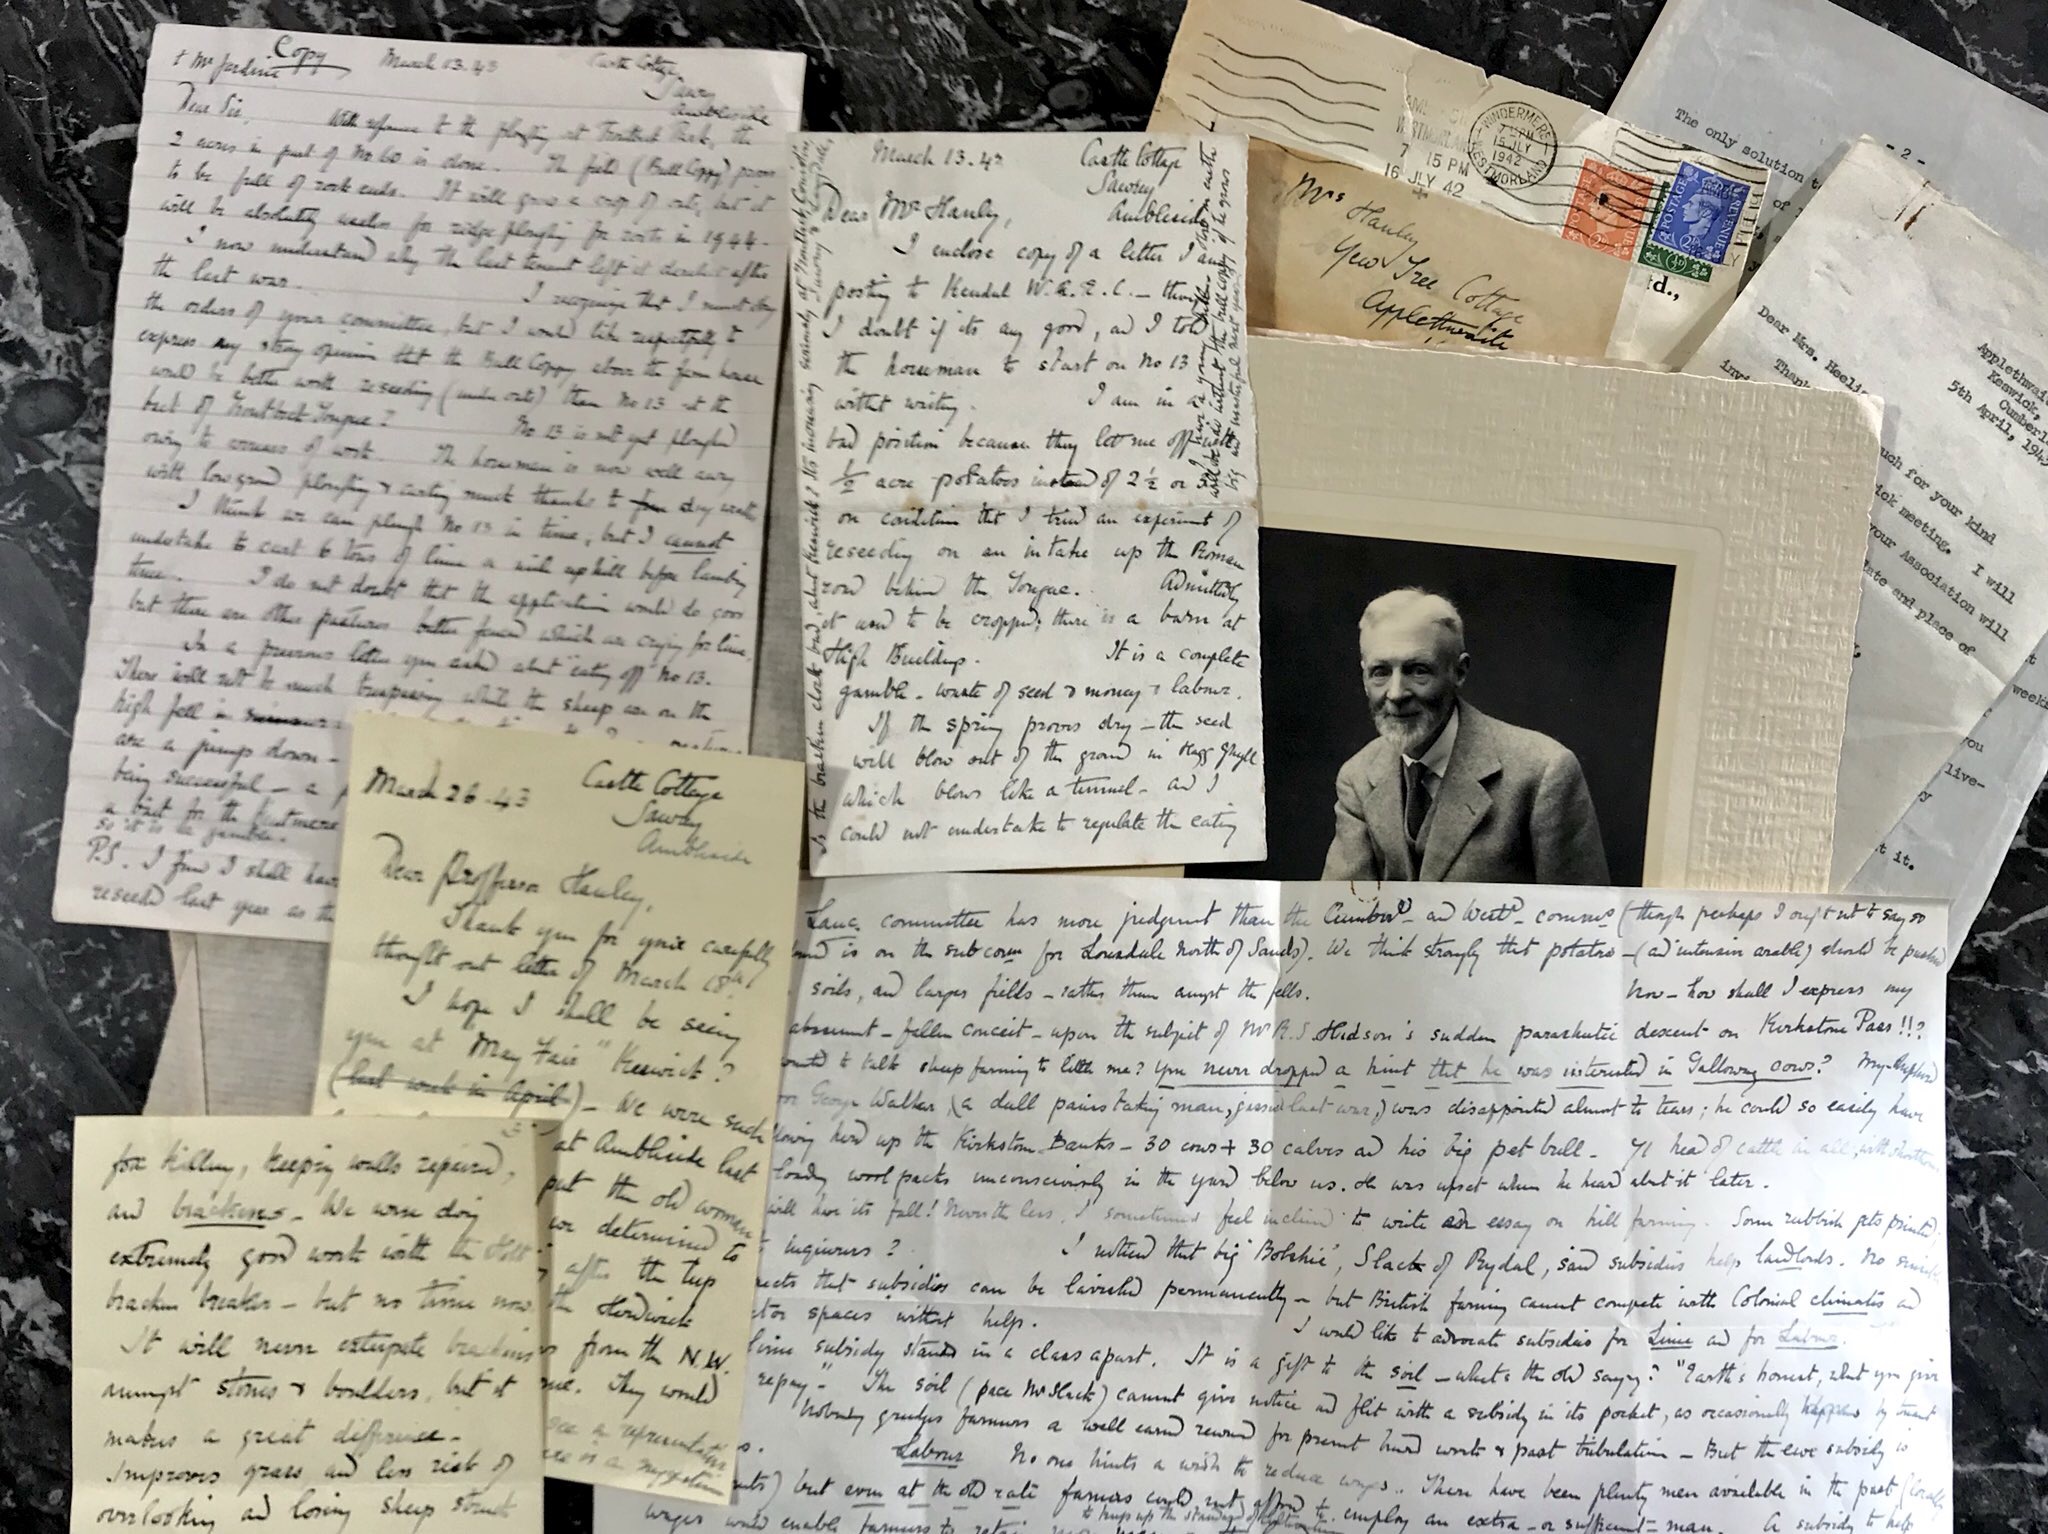 Copy
March 13.43
Castle Cottage
to Mr Jardine
Sawrey
Ambleside
Dear Sir,
With reference to the ploughing at Troutbeck Park, the
2 acres in part of No 60 is done. The field (Bull Coppy) proves
to be full of rock ends. It will grow a crop of oats, but it
will be absolutely useless for ridge ploughing for roots in 1944.
I now understand why the last tenant left it derelict after
the last war.
I recognise that I must obey
the orders of your committee, but I would like respectfully to
express my strong opinion that the Bull Coppy above the farm house
would be better worth reseeding (under oats) than No 13 at the
back of Troutbeck Tongue?
No 13 is not yet ploughed
owing to excess of work. The horseman is now well away
with low ground ploughing & carting much thanks to dry weather
I think we can plough No 13 in time, but I cannot
undertake to cart 6 tons of lime a mile up hill before lambing
time. I do not doubt that the application would do good
but there are other pastures better fenced which are crying for lime.
In a previous letter you asked about "eating off" No 13.
There will not be much trespassing while the sheep are on the
high fell in summer
are a jump down
being successful - a
a bait for the
so it is a gamble.
P.S. I find I shall have
reseed last year as the
March 13.43
Castle Cottage
Sawrey
Ambleside
Dear Mr Hanley,
I enclose copy of a letter I am
posting to Kendal W.A.E.C. - though
I doubt if its any good, and I told
the horseman to start on No 13
without waiting. I am in a
bad position because they let me off with
½ acre potatoes instead of 2½ or 3
on condition that I tried an experiment of
reseeding on an intake up the Roman
road behind the Tongue. Admittedly
it used to be cropped; there is a barn at
High Buildings. It is a complete
gamble - waste of seed & money & labour.
If the spring proves dry - the seed
will blow out of the ground in Hagg Ghyll
which blows like a tunnel - and I
could not undertake to regulate the eating
WINDERMERE
15 JLY
1942
WESTMORLAND
7 15 PM
16 JLY 42
POSTAGE
REVENUE
Mrs Hanley
Yew Tree Cottage
Applethwaite
td.,
- 2 -
The only solution to
Applethwaite
Keswick,
Cumberl
5th April, 194
Dear Mrs. Heelis
Thank
uch for your kind
invi
ick meeting. I will
your Association will
ate and place of
week
you
live-
t it.
March 26.43
Castle Cottage
Sawrey
Ambleside
Dear Professor Hanley,
Thank you for your carefully
thought out letter of March 18th.
I hope I shall be seeing
you at "May Fair" Keswick?
(last week in April) - We were such
at Ambleside last
put the old woman
we determined to
after the tup
the Herdwick
from the N.W.
me. They would
see a representative
for killing, keeping walls repaired,
and brackens. We were doing
extremely good work with the Holt
bracken breaker - but no time now.
It will never extirpate brackens
amongst stones & boulders, but it
makes a great difference -
improves grass and less risk of
overlooking and losing sheep struck
Lanc. committee has more judgment than the Cumberd and Westd comms (though perhaps I ought not to say so
is on the subcom for Lonsdale North of Sands). We think strongly that potatoes - (and intensive arable) should be pushed
soils, and larger fields - rather than amongst the fells.
Now - how shall I express my
- fallen conceit - upon the subject of Mr R.S. Hudson's sudden parachutic descent on Kirkstone Pass!!?
wanted to talk sheep farming to little me? You never dropped a hint that he was interested in Galloway cows? My shepherd
George Walker (a dull painstaking man, gassed last war,) was disappointed almost to tears; he could so easily have
herd up the Kirkstone Banks - 30 cows + 30 calves and his big pet bull. 71 head of cattle in all, with shorthorns
loading wool packs unconsciously in the yard below us. He was upset when he heard about it later.
will have its fall! Nevertheless, I sometimes feel inclined to write an essay on hill farming. Some rubbish gets printed;
I noticed that big "Bolshie", Slack of Rydal, said subsidies help landlords. No
that subsidies can be lavished permanently - but British farming cannot compete with Colonial climates and
spaces without help.
I would like to advocate subsidies for Lime and for Labour.
lime subsidy stands in a class apart. It is a gift to the soil - what's the old saying? "Earth's honest, what you give
repay." The soil (pace Mr Slack) cannot give notice and flit with a subsidy in its pocket, as occasionally happens by tenant
Nobody grudges farmers a well earned reward for present hard work & past tribulation - But the ewe subsidy is
Labour No one hints a wish to reduce wages. There have been plenty men available in the past (locally
but even at the old rate farmers could not afford to employ an extra - or sufficient = man. A subsidy to help
wages would enable farmers to